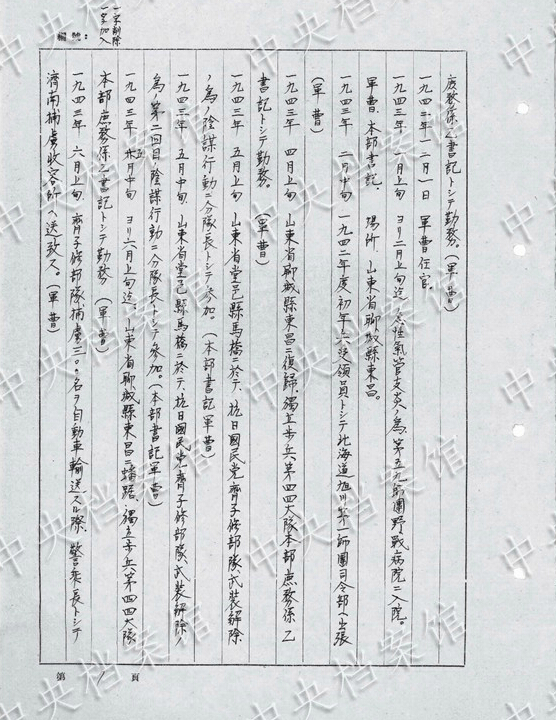 庶務係乙書記トシテ勤務。（軍曹）
一九四二年一二月一日　軍曹任官。
一九四三年　一月上旬　ヨリ二月上旬迄、急性氣管支炎ノ為、第五九師團野戰病院ニ入院。
軍曹、本部書記、　場所　山東省聊城縣東昌。
一九四三年　二月中旬　一九四二年度初年兵受領員トシテ北海道旭川第一師團司令部ヘ出張
（軍曹）
一九四三年　四月上旬　山東省聊城縣東昌ニ復歸、獨立步兵第四四大隊本部庶務係乙
書記トシテ勤務。　（軍曹）
一九四三年　五月上旬　山東省堂邑縣馬橋ニ於テ、抗日國民党齊子修部隊武装解除
ノ為ノ陰謀行動ニ分隊長トシテ参加。（本部書記軍曹）
一九四三年　五月中旬、山東省堂邑縣馬橋ニ於テ、抗日國民党齊子修部隊、武装解除ノ
為ノ第二回目ノ陰謀行動ニ分隊長トシテ参加。（本部書記軍曹）
一九四三年　五月中旬　ヨリ六月上旬迄、山東省聊城縣東昌ニ蟠踞、獨立步兵第四四大隊
本部庶務係乙書記トシテ勤務（軍曹）
一九四三年　六月上旬、齊子修部隊捕虜三〇〇名ヲ自動車輸送スル際、警乘長トシテ
濟南捕虜收容所ヘ送致ス。（軍曹）
一字削除
一字加入
編號：
第　1　頁
中央档案馆